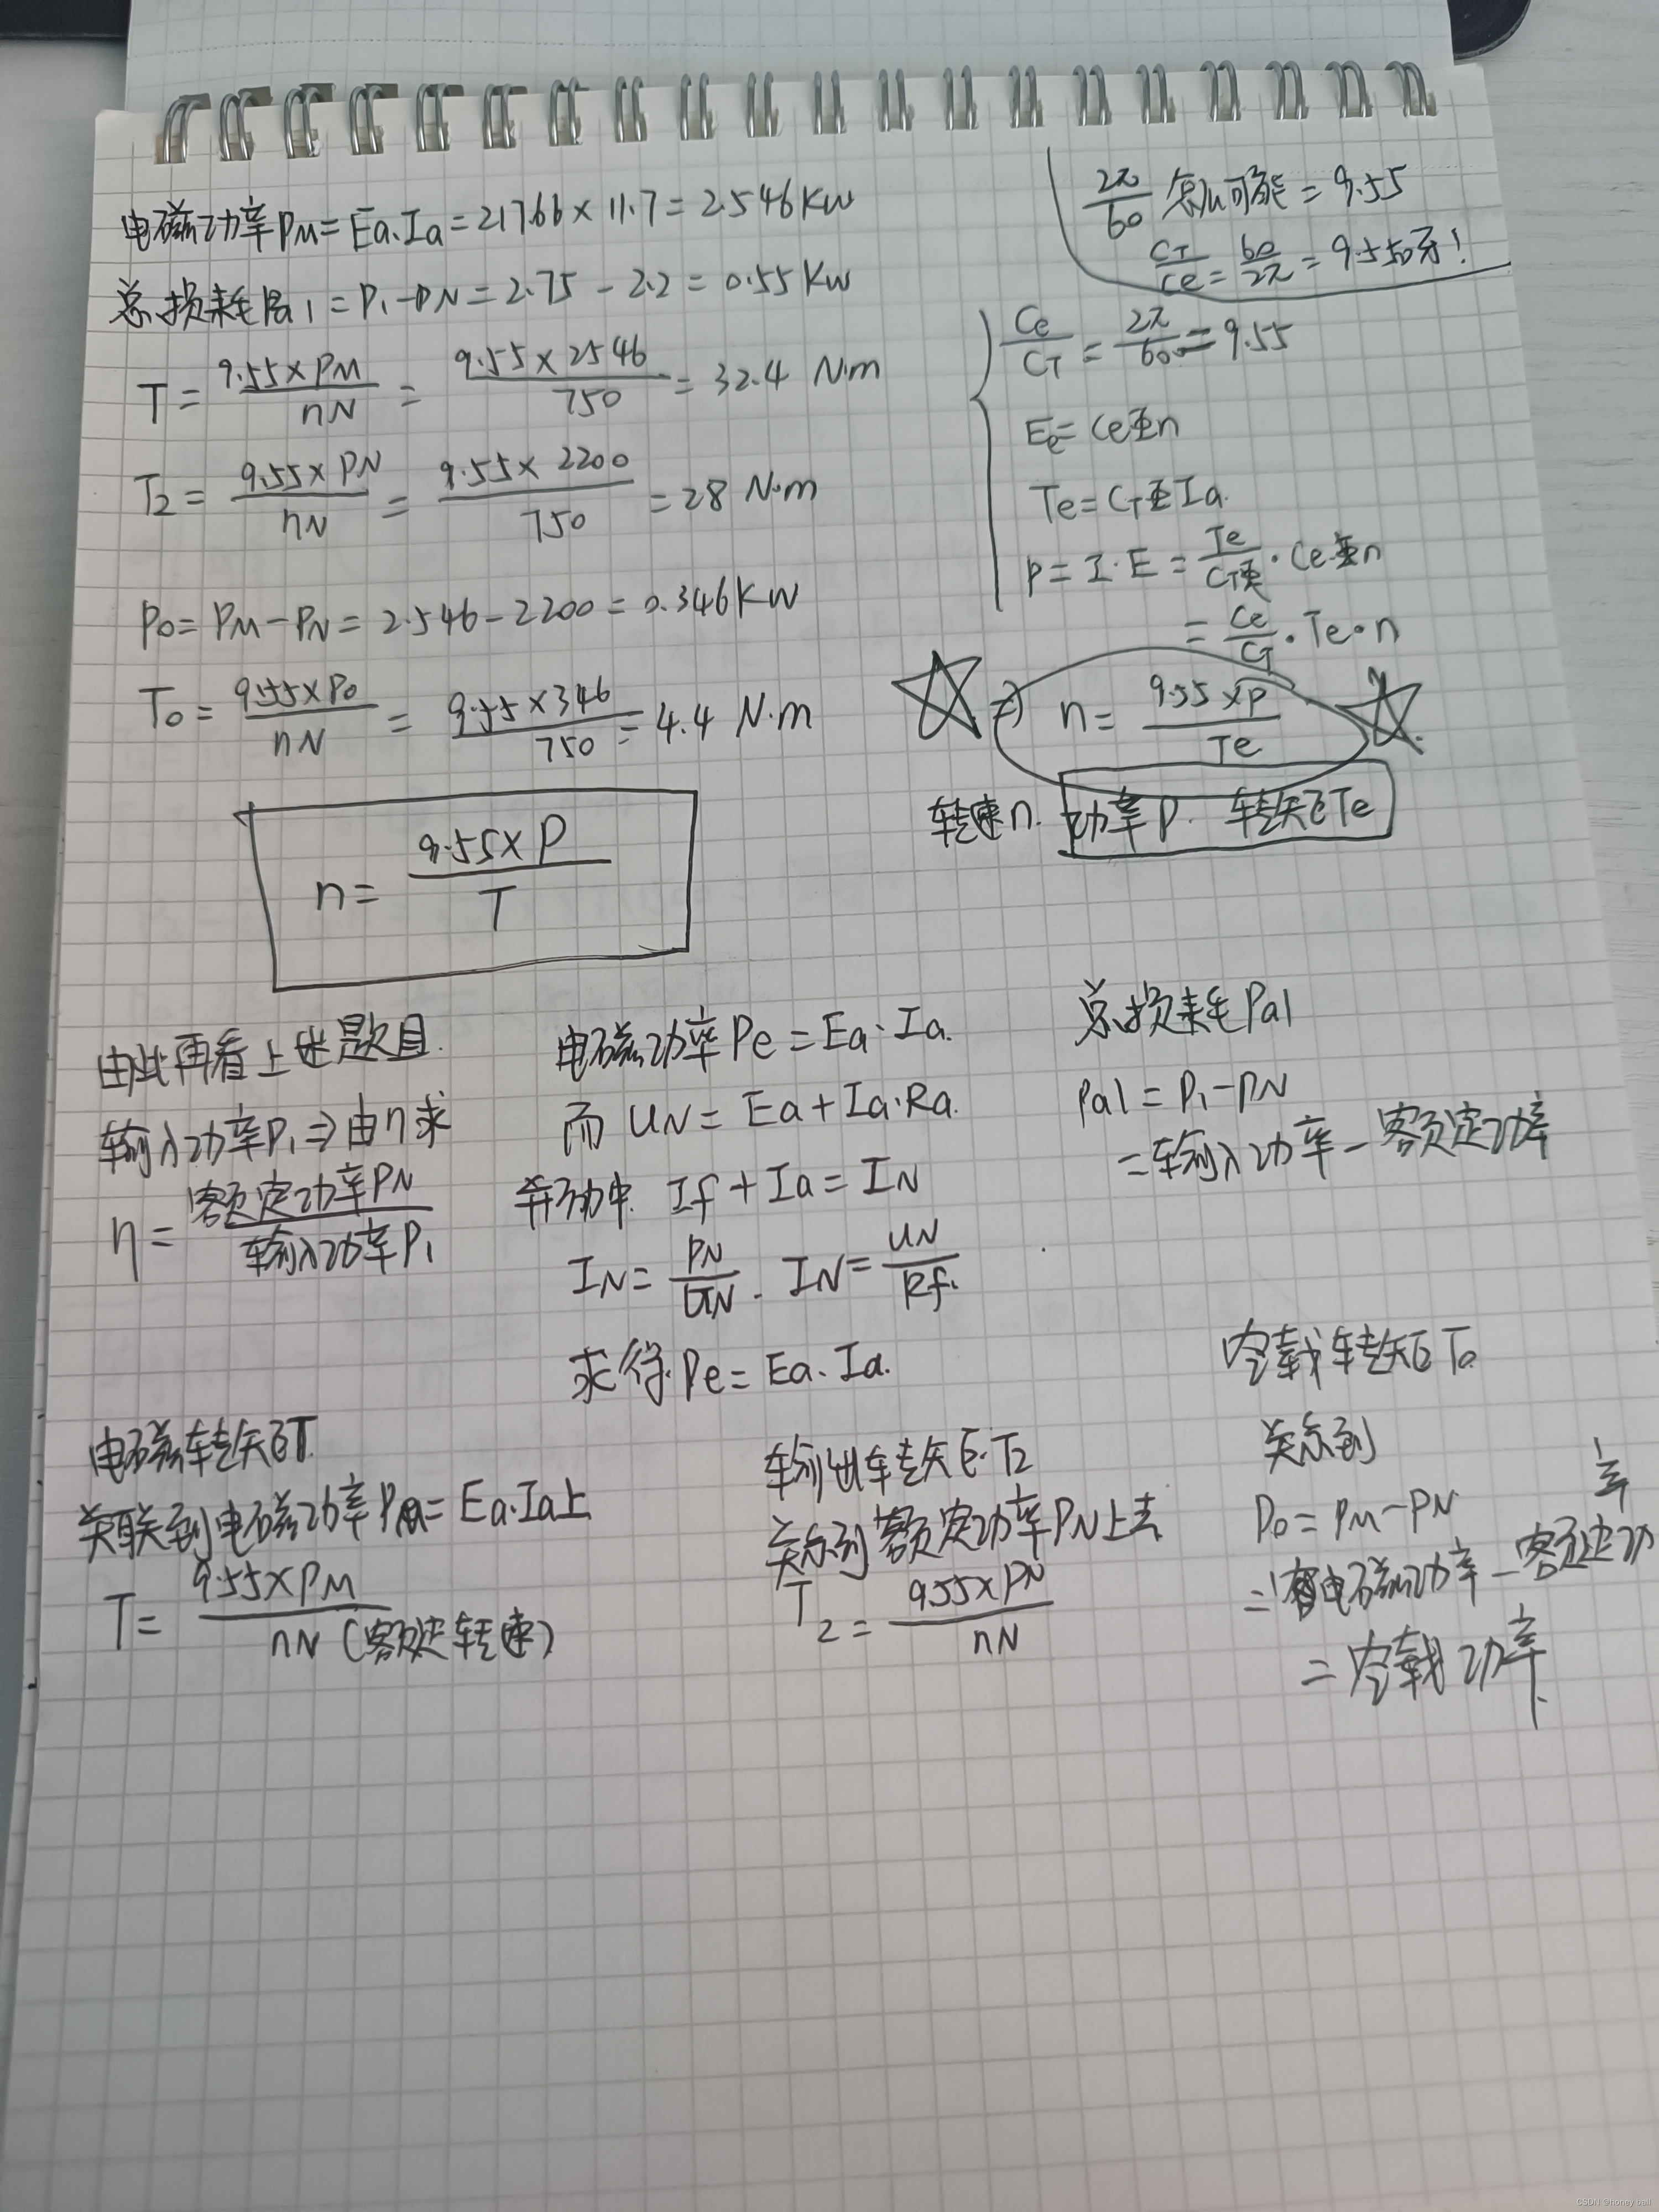 电磁功率PM=Ea.Ia=217.66×11.7=2.546KW
总损耗Pal=P1-PN=2.75-2.2=0.55KW
T=9.55×PM/nN=9.55×2546/750=32.4 N·m
T2=9.55×PN/nN=9.55×2200/750=28 N·m
P0=PM-PN=2.546-2200=0.346KW
T0=9.55×P0/nN=9.55×346/750=4.4 N·m
n=9.55×P/T
2π/60 怎么可能=9.55
CT/Ce=60/2π=9.55 !
Ce/CT=2π/60=9.55
Ee=CeΦn
Te=CTΦIa.
P=I·E=Te/CTΦ·CeΦn
=Ce/CT·Te·n
⇒ n=9.55×P/Te
转速n. 功率P. 转矩Te
由此再看上述题目.
输入功率P1⇒由η求
η=额定功率PN/输入功率P1
电磁功率Pe=Ea·Ia.
而 UN=Ea+Ia·Ra.
并励中. If+Ia=IN
IN=PN/UN. IN=UN/Rf.
求得.Pe=Ea.Ia.
总损耗Pal
Pal=P1-PN
=输入功率-额定功率
电磁转矩T.
关联到电磁功率 =Ea.Ia上
T=9.55×PM/nN(额定转速)
输出转矩.T2
关系到额定功率PN上去
T2=9.55×PN/nN
空载转矩T0
关系到
P0=PM-PN
=电磁功率-额定功率
=空载功率.
CSDN @honey ball